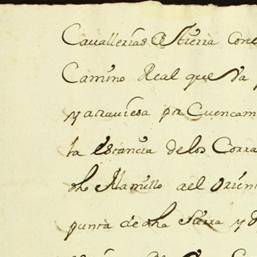 Cavallerias de tierra conc
Camino Real que va p
y atraviesa pr Cuencam
la estancia de los Corra
dho Alamillo ael Orien
punta de dha Sierra y d